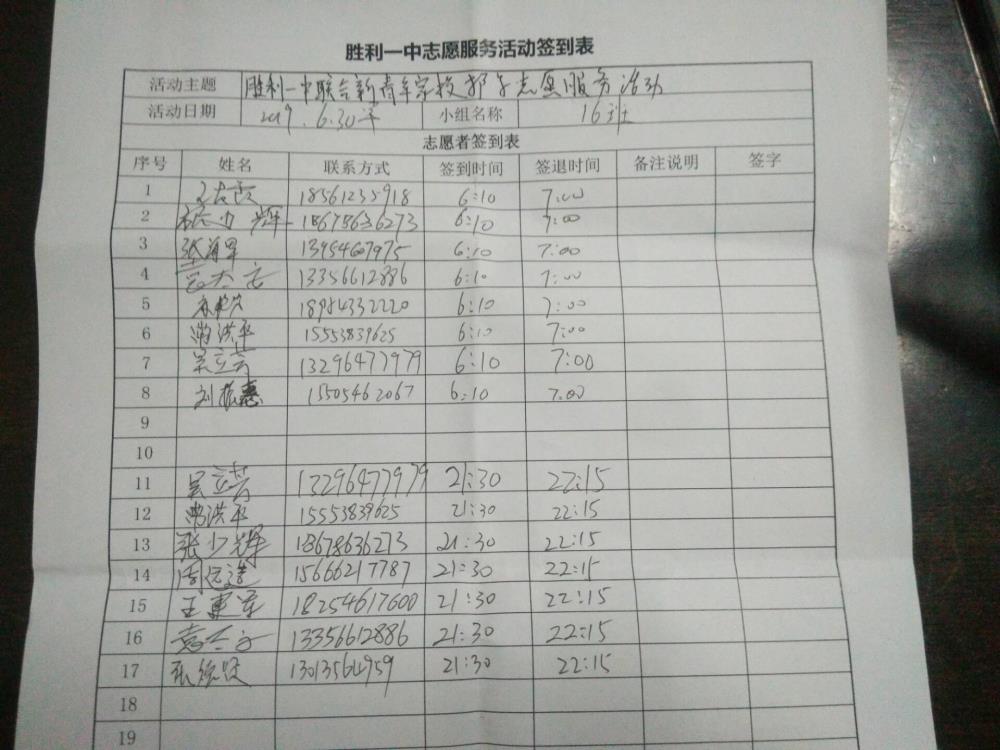 胜利一中志愿服务活动签到表
活动主题 胜利一中联合新青年家校携手志愿服务活动
活动日期 2019.6.30 小组名称 16班
志愿者签到表
序号 姓名 联系方式 签到时间 签退时间 备注说明 签字
1 18561235918 6:10 7:00
2 张少辉 18678636273 6:10 7:00
3 13954607975 6:10 7:00
4 13356612886 6:10 7:00
5 18954332220 6:10 7:00
6 常洪平 15553839625 6:10 7:00
7 吴立芳 13296477979 6:10 7:00
8 刘振惠 15505462067 6:10 7:00
9
10
11 吴立芳 13296477979 21:30 22:15
12 常洪平 15553839625 21:30 22:15
13 张少辉 18678636273 21:30 22:15
14 周运造 15666217787 21:30 22:15
15 王惠军 18254617600 21:30 22:15
16 13356612886 21:30 22:15
17 21:30 22:15
18
19